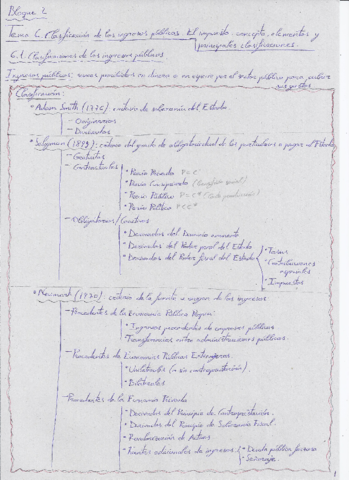 Bloque 2
Tema 6. Clasificación de los ingresos públicos. El impuesto: concepto, elementos y
principales clasificaciones.
6.1. Clasificaciones de los ingresos públicos
Ingresos públicos: sumas percibidas en dinero o en especie por el sector público para cubrir
sus gastos
Clasificación:
• Adam Smith (1776): criterio de soberanía del Estado
- Originarios
- Derivados
• Seligman (1893): criterio del grado de obligatoriedad de los particulares a pagar al Estado
- Gratuitos
- Contractuales
• Precio Privado P=C
• Precio Cuasiprivado
• Precio Público
• Precio Político P<C
- Obligatorios / Coactivos
• Derivados del Dominio eminente
• Derivados del Poder penal del Estado
• Derivados del Poder fiscal del Estado
• Tasas
• Contribuciones
especiales
• Impuestos
• Neumark (1970): criterio de la fuente u origen de los ingresos
- Procedentes de la Economía Pública Propia:
• Ingresos procedentes de empresas públicas
• Transferencias entre administraciones públicas.
- Procedentes de Economías Públicas Extranjeras
• Unilaterales (o sin contraprestación).
• Bilaterales
- Procedentes de la Economía Privada
• Derivados del Principio de Contraprestación.
• Derivados del Principio de Soberanía Fiscal.
• Privatización de Activos
• Fuentes adicionales de ingresos
• Deuda pública forzosa
• Señoreaje.